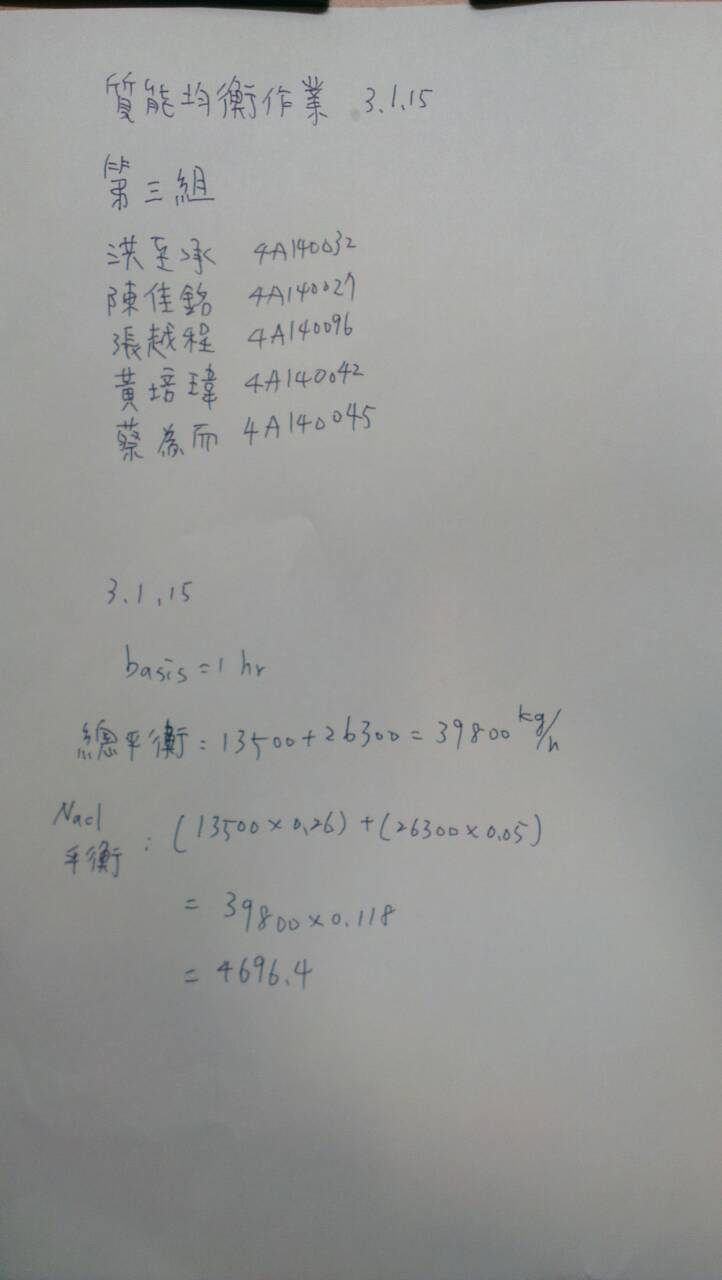 質能均衡作業 3.1.15
第三組
洪至承 4A140032
陳佳銘 4A140027
張越程 4A140096
黃培瑋 4A140042
蔡為而 4A140045
3.1.15
basis=1 hr
總平衡：13500+26300=39800 kg/h
Nacl平衡：(13500×0.26)+(26300×0.05)
=39800×0.118
=4696.4